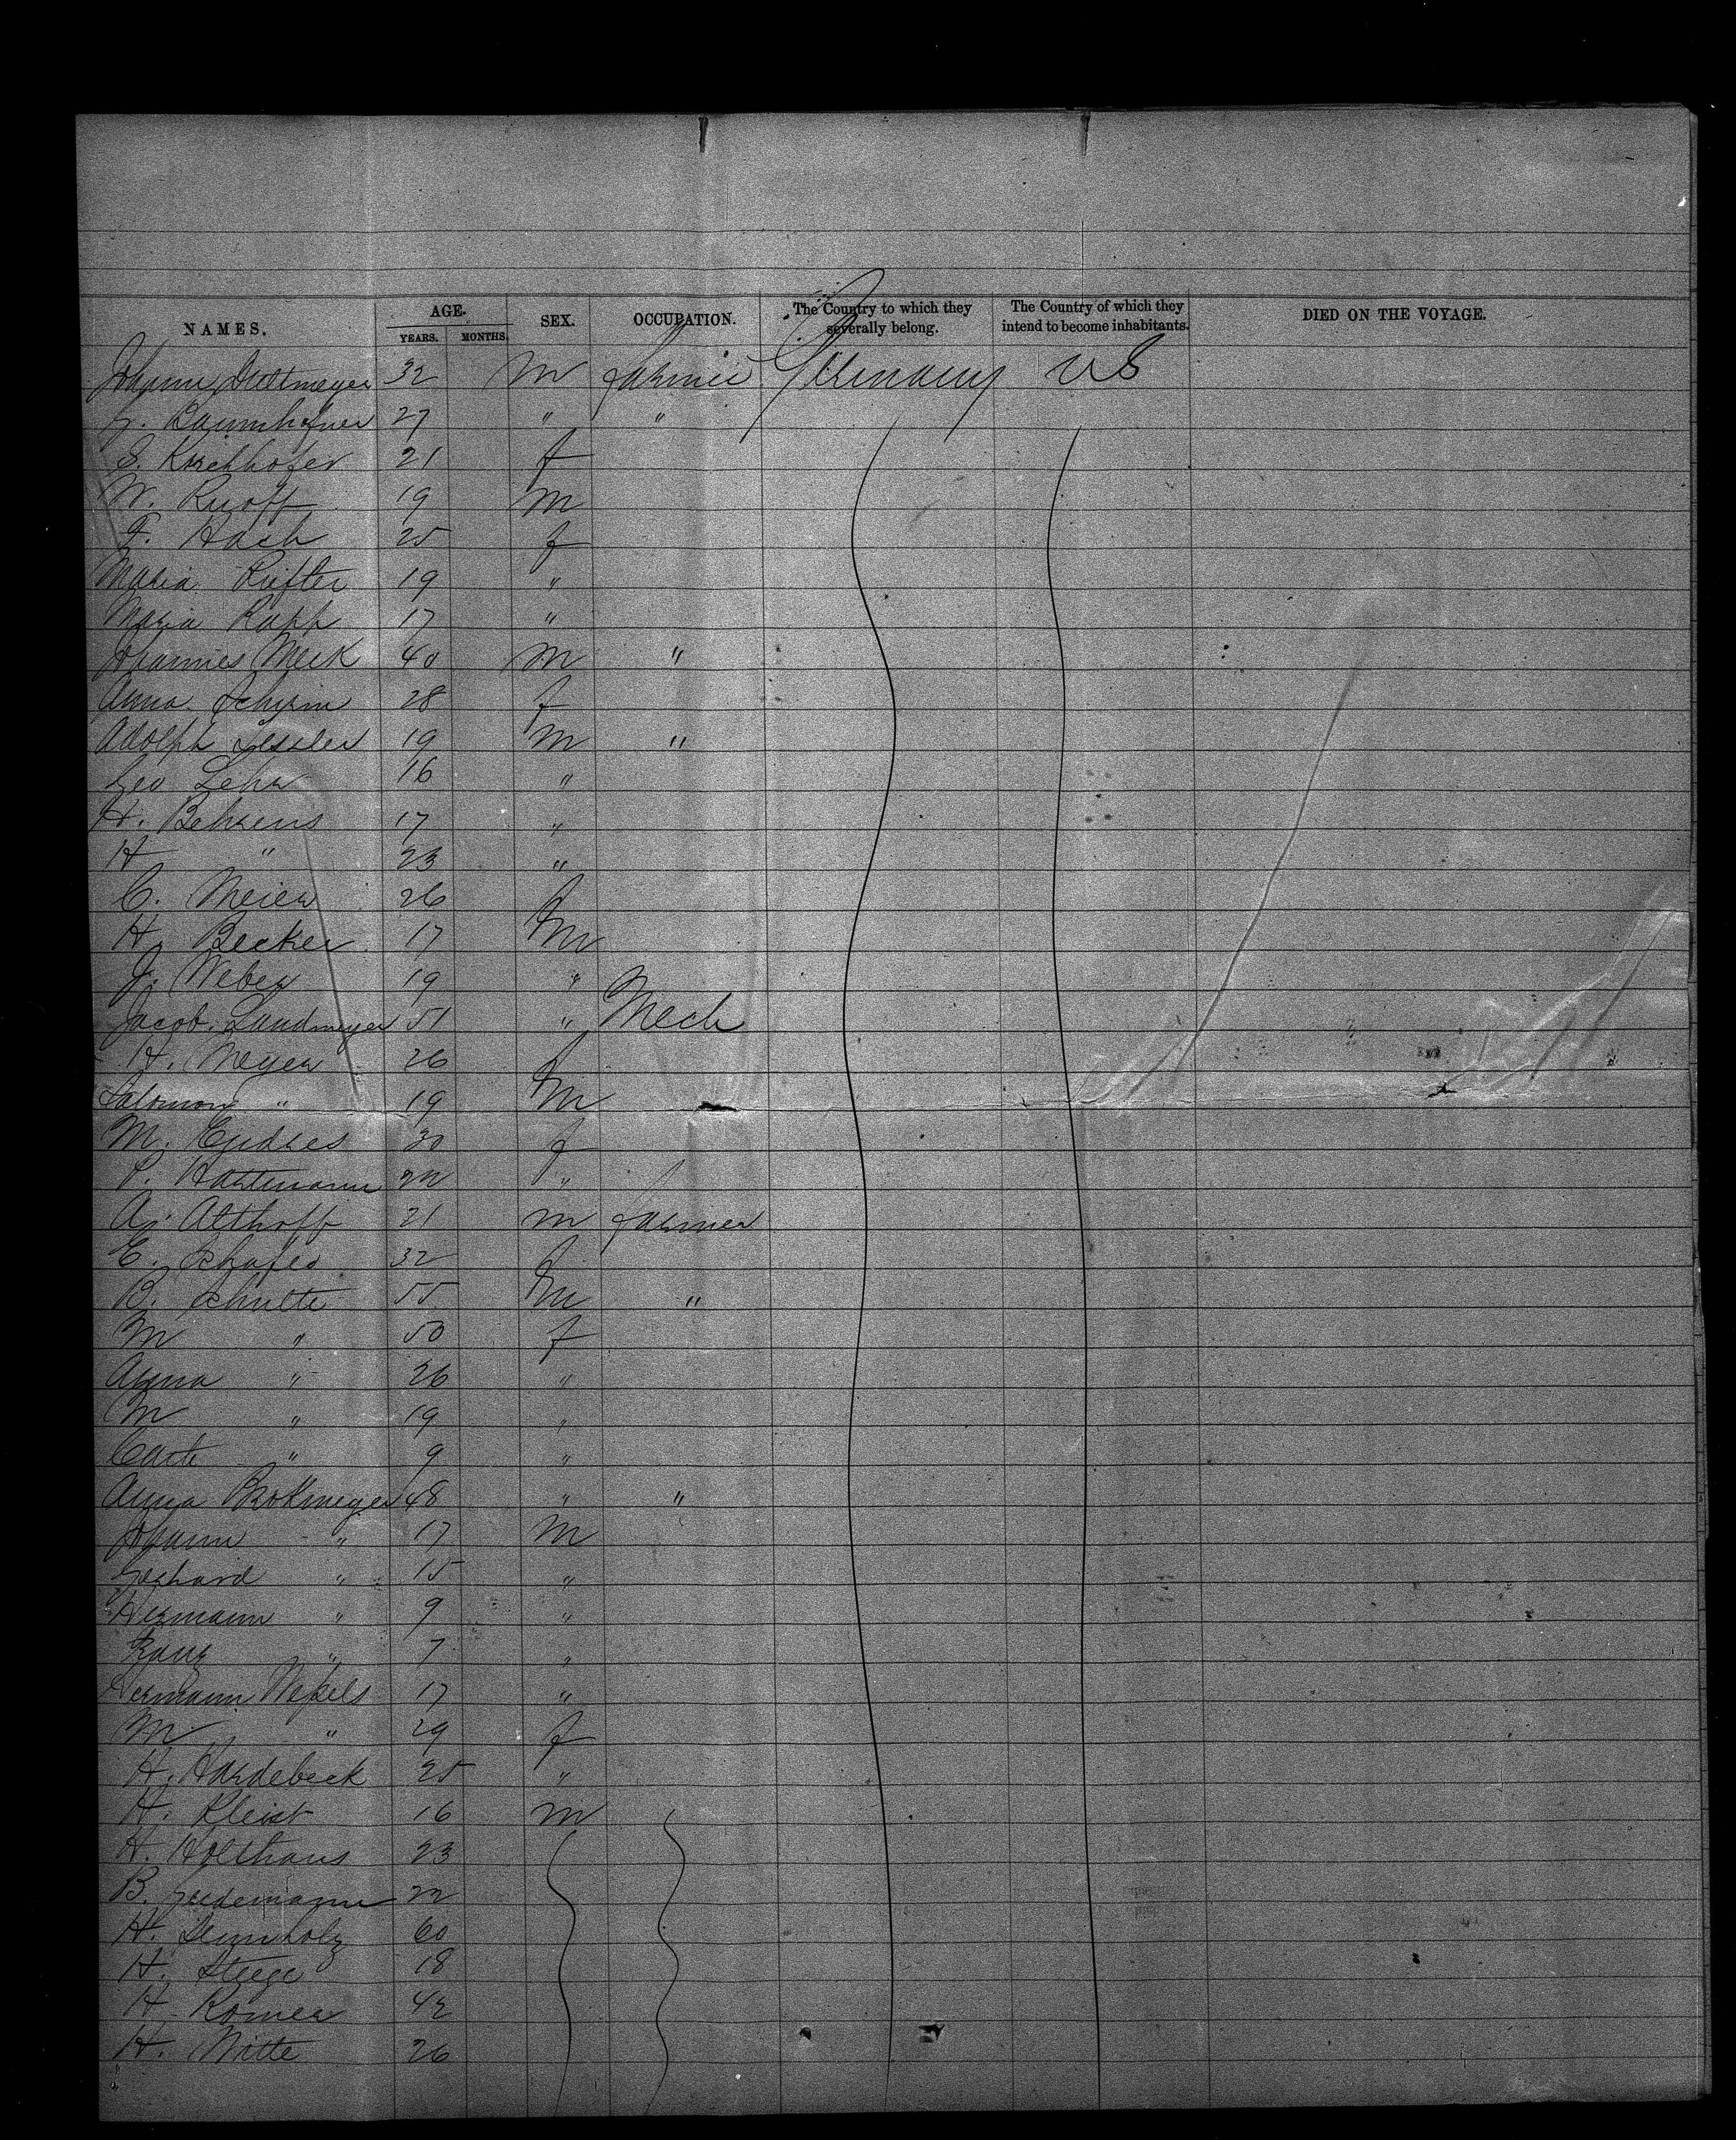 NAMES. AGE. SEX. OCCUPATION. The Country to which they severally belong. The Country of which they intend to become inhabitants. DIED ON THE VOYAGE.
YEARS. MONTHS.
Johann 32 m farmer Germany US
27 " "
S. Kirchhofer 21 f
W. Ruoff 19 m
F. Hach 25 f
Maria 19 "
Maria Rapp 17 "
Johannes Meck 40 m "
Anna 28 f
Adolph Lessler 19 m "
Geo Lehr 16 "
H. Behrens 17 "
H " 23 "
C. Meier 26 f
H. Becker 17 m
J. Weber 19 "
Jacob Landmeyer 51 " Mech
H. Meyer 26 f
Salomon " 19 m
M. Endres 30 f
P. Hartmann 22 "
A. Althoff 21 m farmer
E. Schafer 32 f
B. Schulte 55 m "
M " 50 f
Anna " 26 "
M " 19 "
" 9 "
Anna Brokmeyer 48 " "
Johann " 17 m
Gerhard " 15 "
Hermann " 9 "
Franz " 7 "
Hermann Wessels 17 "
M " 29 f
H. Hardebeck 25 "
H. Kleist 16 m
H. Holthaus 23
B. 22
H. 60
H. Stege 18
H. Romer 42
H. Witte 26
"